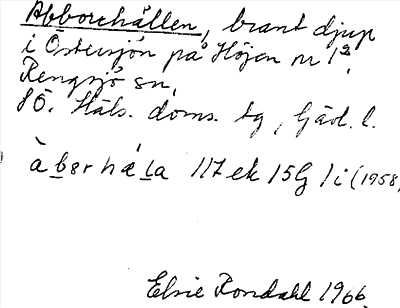 Abborehällen, brant djup
i Östersjön på Höjen nr 1²,
Rengsjö sn,
Sö. Häls. doms. tg, Gävl. l.
àberhäla 117 ek 15G 1i (1958,
Elsie Rondahl 1966.